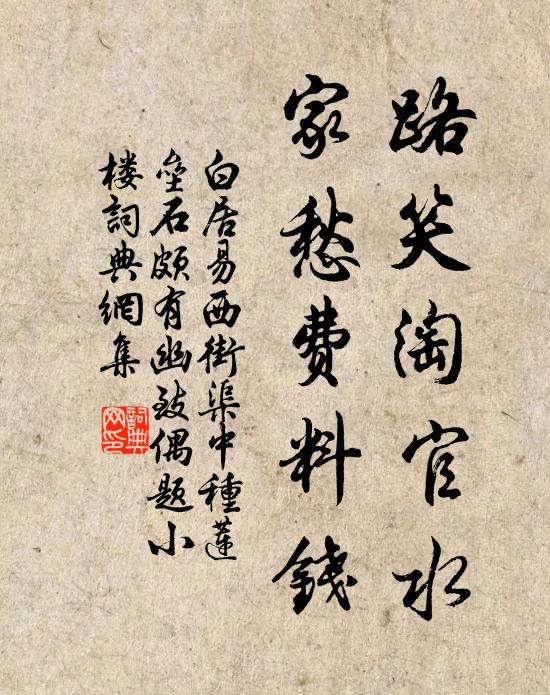 路笑淘官水
家愁費料錢
白居易西街渠中種蓮
垒石頗有幽致偶题小
楼詞典網集
詞典网印